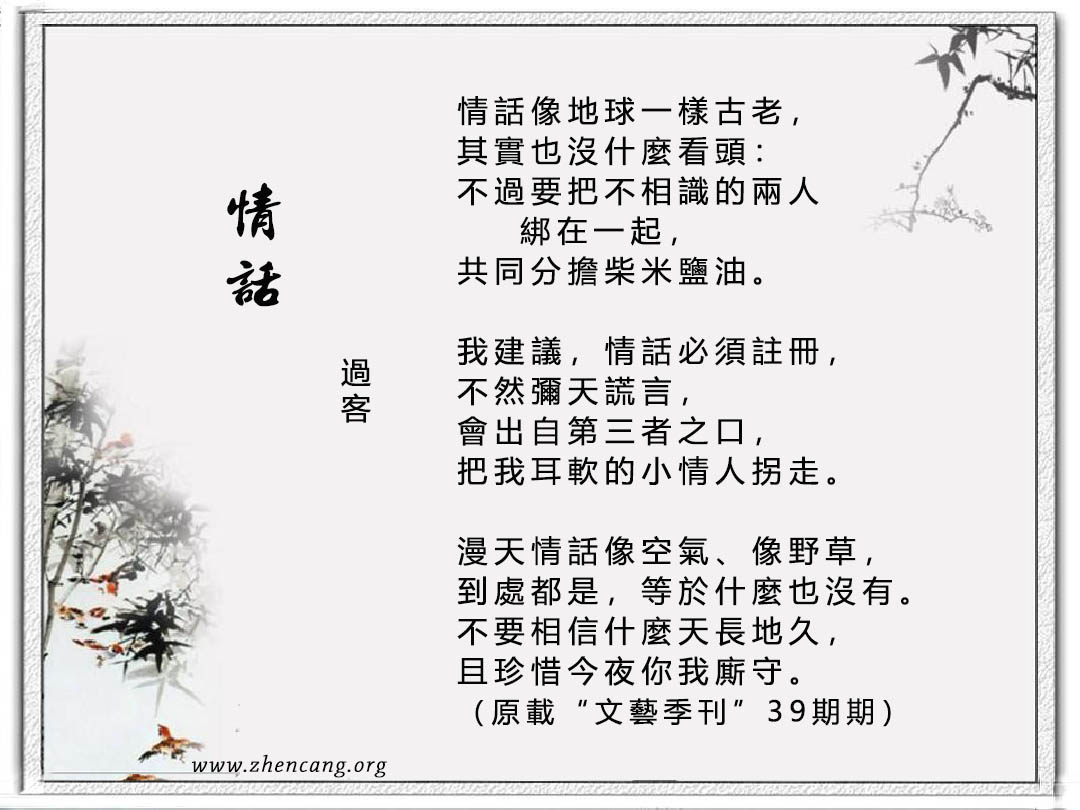 情話
過客
情話像地球一樣古老，
其實也沒什麼看頭：
不過要把不相識的兩人
綁在一起，
共同分擔柴米鹽油。
我建議，情話必須註冊，
不然彌天謊言，
會出自第三者之口，
把我耳軟的小情人拐走。
漫天情話像空氣、像野草，
到處都是，等於什麼也沒有。
不要相信什麼天長地久，
且珍惜今夜你我廝守。
（原載“文藝季刊”39期期）
www.zhencang.org